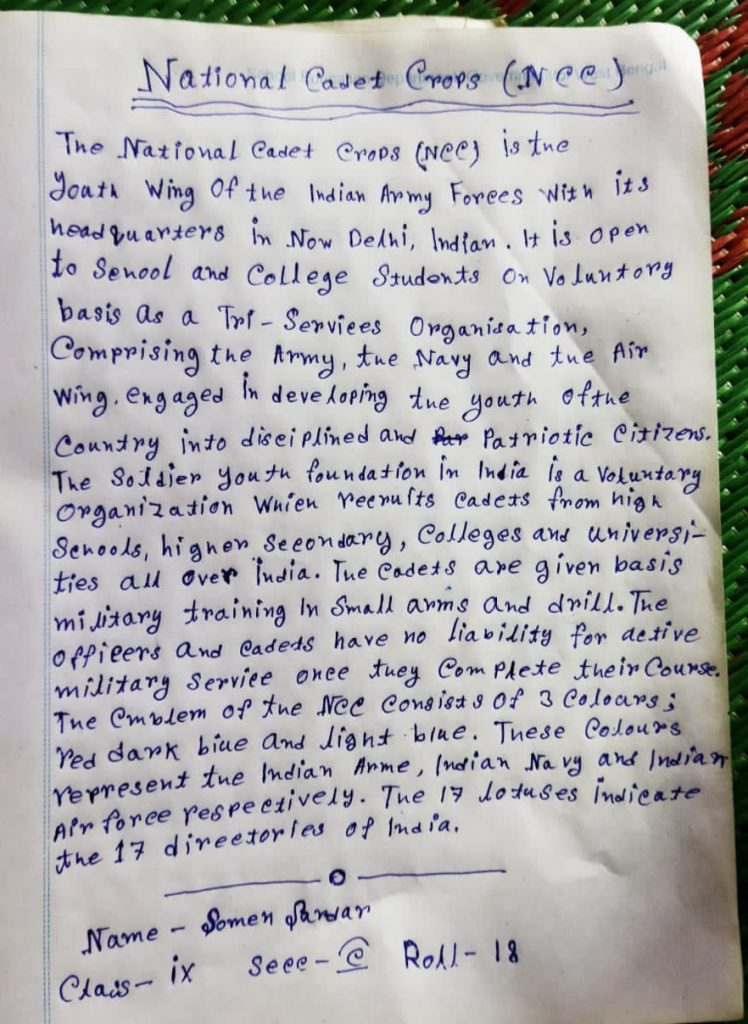 National Cadet Crops (NCC)
The National Cadet Crops (NCC) is the
Youth Wing Of the Indian Army Forces With its
headquarters in Now Delhi, Indian. It is open
to School and College Students On Voluntory
basis as a Tri-Services Organisation,
Comprising the Army, the Navy and the Air
Wing. engaged in developing the youth of the
Country into disciplined and Patriotic Citizens.
The Soldier youth foundation in India is a Voluntary
Organization Which recruits Cadets from high
Schools, higher Secondary, Colleges and universi-
ties all over India. The Cadets are given basis
military training In Small arms and drill. The
officers and Cadets have no liability for active
military Service once they Complete their Course.
The Emblem of the NCC Consists Of 3 Colours;
red dark blue and light blue. These Colours
represent the Indian Arme, Indian Navy and Indian
Air force respectively. The 17 lotuses indicate
the 17 directories of India.
Name - Somen Sardar
Class - ix Secc - C Roll - 18